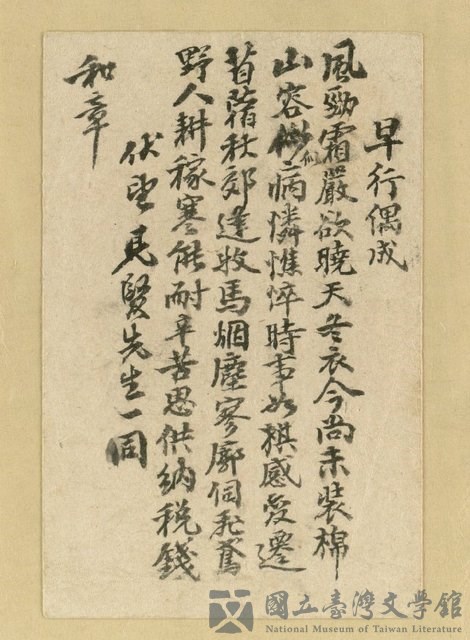 早行偶成
風勁霜嚴欲曉天冬衣今尚未裝棉
山容似病憐憔悴時事如棋感變遷
苜蓿秋郊達牧馬烟塵寥廓個飛鳶
野人耕稼寒能耐辛苦思供納稅錢
伏望見賢先生一同
和章
國立臺灣文學館
National Museum of Taiwan Literature